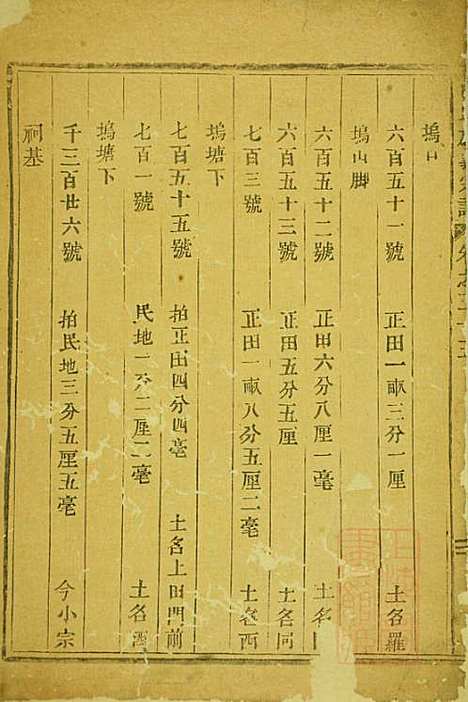 塢口
六百五十一號 正田一畝三分一厘 土名羅
塢山脚
六百五十二號 正田六分八厘一毫 土名
六百五十三號 正田五分五厘 土名同
七百三號 正田一畝八分五厘二毫 土名西
塢塘下
七百五十五號 拍正田四分四毫 土名上田門前
七百一號 民地一分二厘二毫 土名西
塢塘下
千三百廿六號 拍民地三分五厘五毫 今小宗
祠基